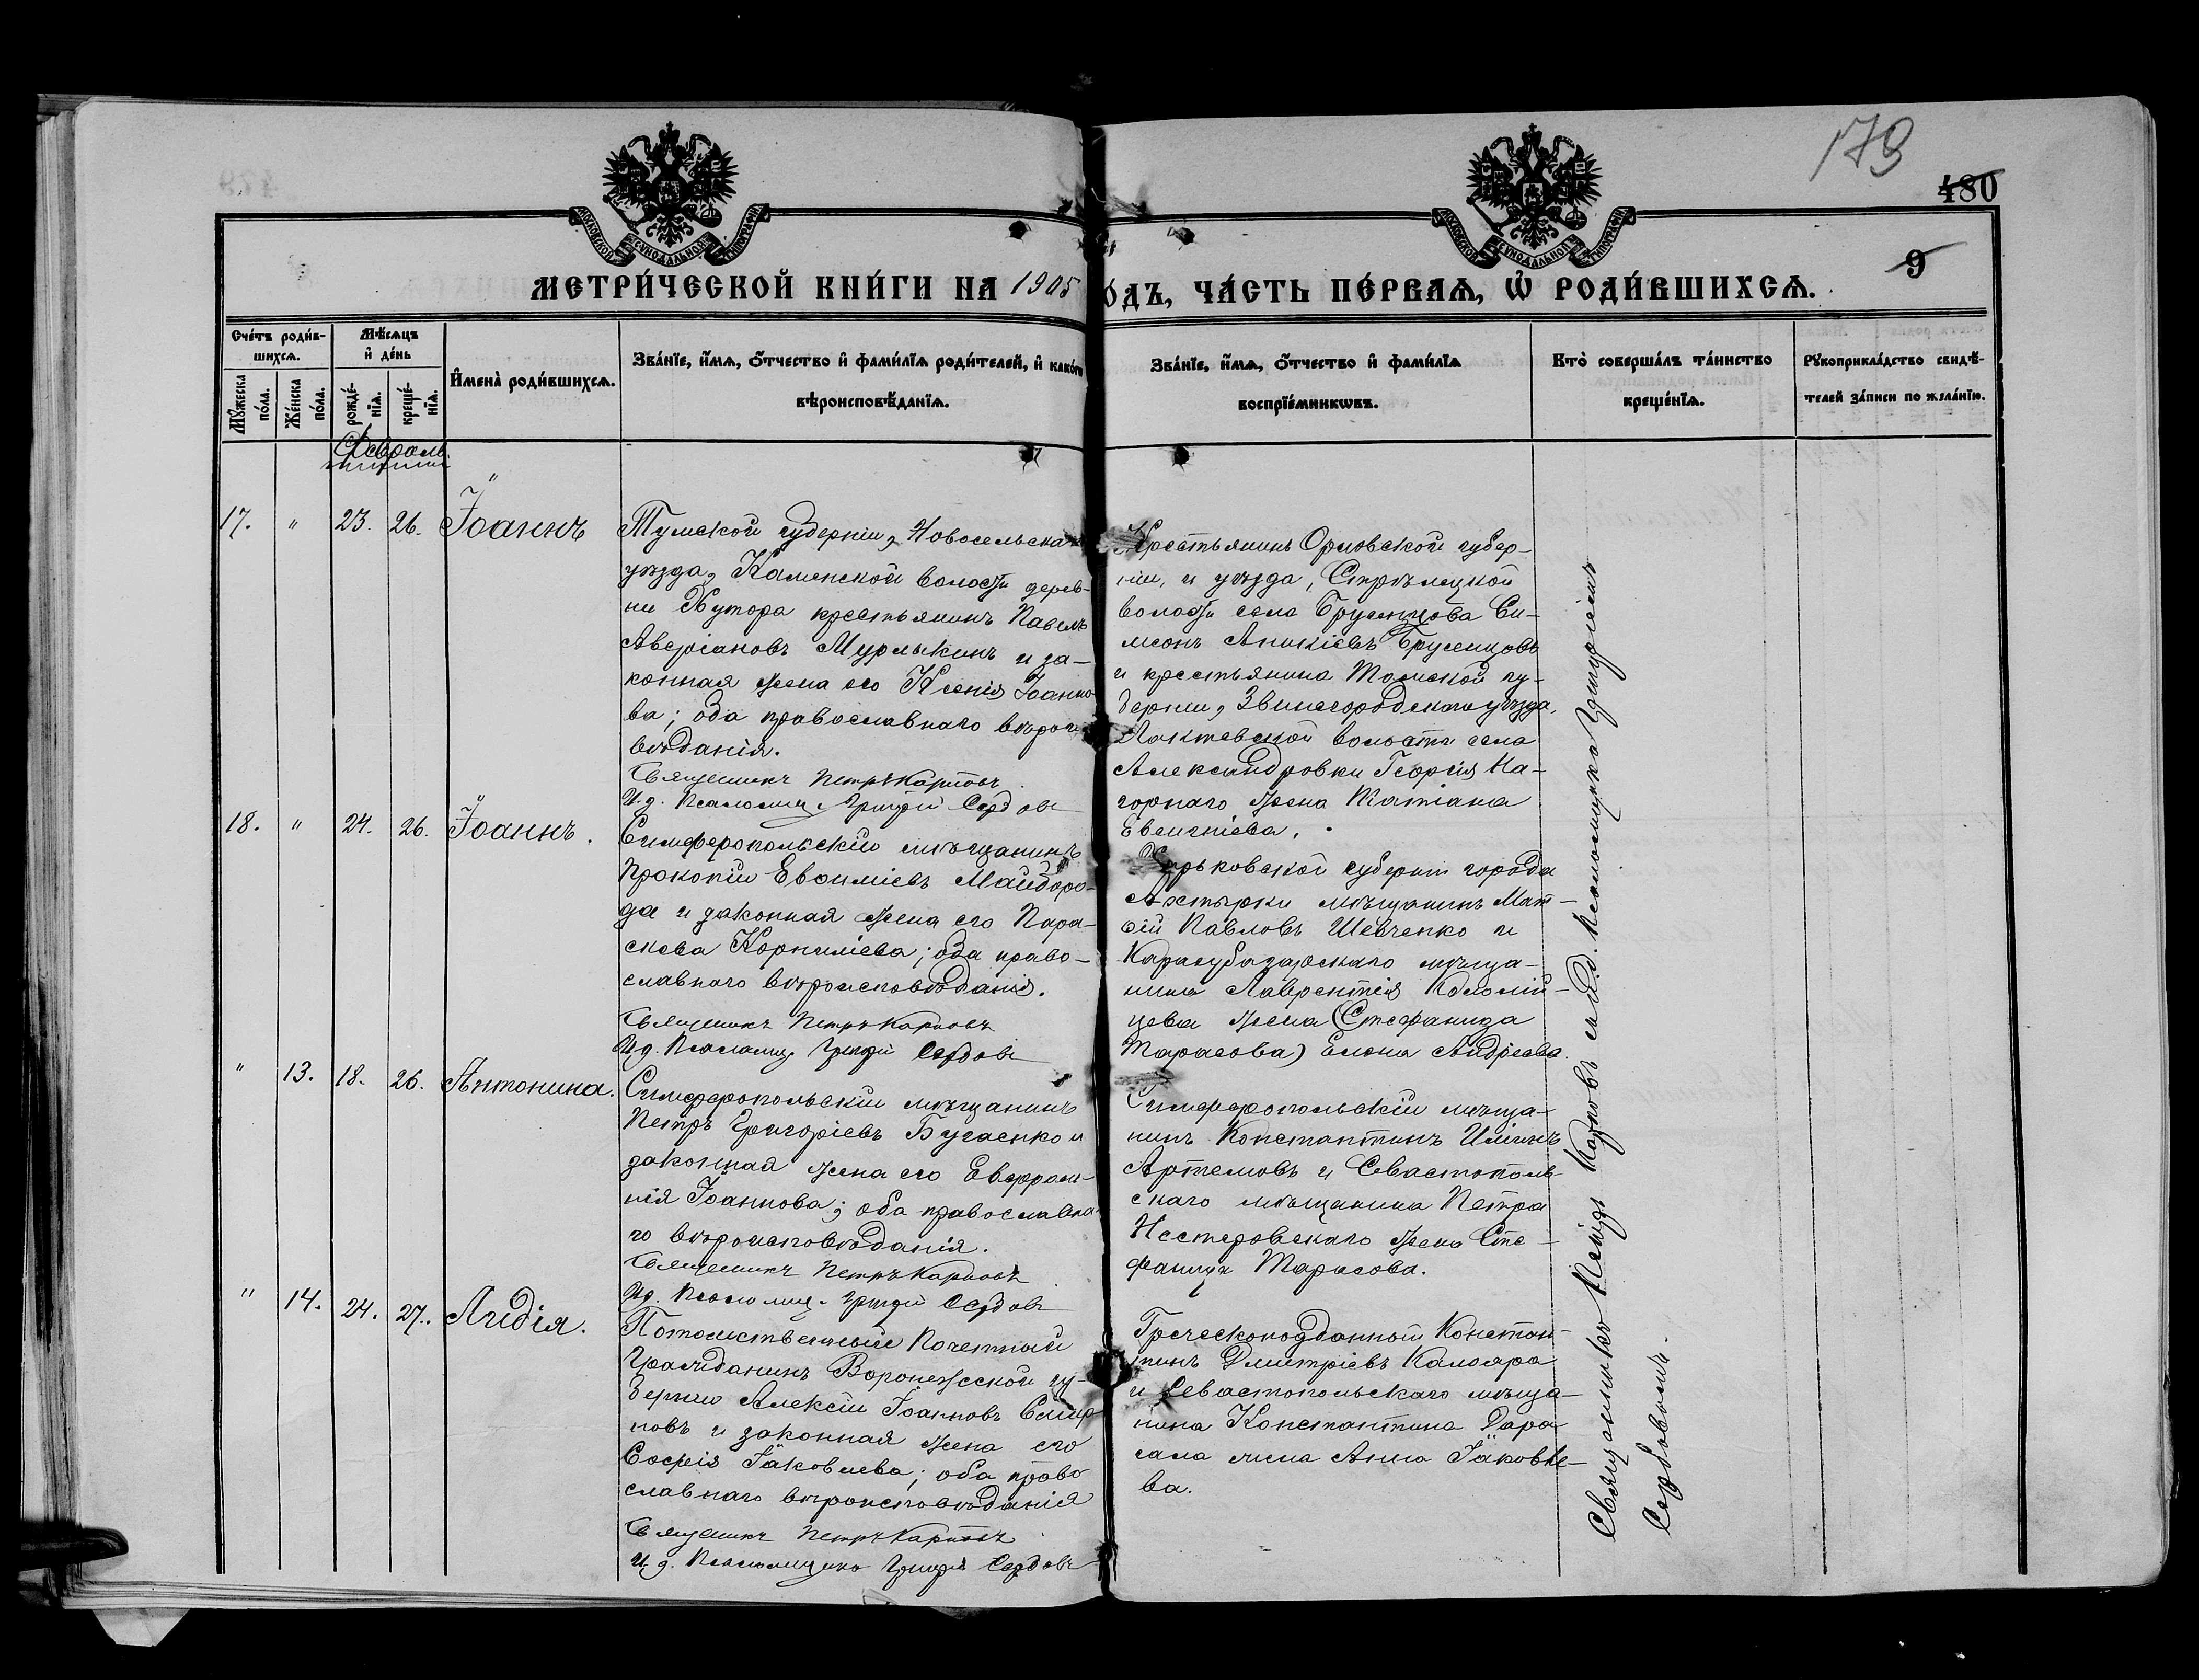 179
480
9
МЕТРИ́ЧЕСКОЙ КНИ́ГИ НА 1905
ОДЪ, ЧА́СТЬ ПЕ́РВАѦ, Ѽ РОДИ́ВШИХСѦ.
Сче́тъ роди́в-
шихсѧ.
Мѣ́сѧцъ
и҆ де́нь
Мꙋ́жеска по́ла.
Же́нска по́ла.
рожде́-
нїѧ.
креще́-
нїѧ.
И҆мена̀ роди́вшихсѧ.
Зва́нїе, и҆́мѧ, о҆́тчество и҆ фами́лїѧ роди́телей, и҆ како́гѡ
вѣроисповѣ́данїѧ.
Зва́нїе, и҆́мѧ, о҆́тчество и҆ фами́лїѧ
воспрїе́мникѡвъ.
Кто̀ соверша́лъ та́инство
креще́нїѧ.
Рꙋкоприкла́дство свидѣ́-
телей за́писи по жела́нїю.
Февраль
17. " 23. 26. Іоаннъ
Тульской губерніи, Новосельскаго
уѣзда, Каменской волости дерев-
ни Хутора крестьянинъ Павелъ
Аверіановъ Мурлыкинъ и за-
конная жена его Ксенія Іоанно-
ва; оба православнаго вѣроиспо-
вѣданія.
Священникъ Петръ Карповъ
И. д. Псаломщ. Григорій Сердовъ
Крестьянинъ Орловской губер-
ніи, и уѣзда, Стрѣлецкой
волости села Брусенцова Си-
меонъ Аникіевъ Брусенцовъ
и крестьянина Томской гу-
берніи, Звинегородскаго уѣзда,
волости села
Александровки Георгія На-
горнаго жена Татіана
Евгеніева.
18. " 24. 26. Іоаннъ.
Симферопольскій мѣщанинъ
Прокопій Евѳиміевъ Майборо-
да и законная жена его Пара-
скева Корниліева; оба право-
славнаго вѣроисповѣданія.
Священникъ Петръ Карповъ
И. д. Псаломщ. Григорій Сердовъ
Харьковской губерніи города
Ахтырки мѣщанинъ Мат-
ѳій Павловъ Шевченко и
Карасубазарскаго мѣща-
нина Лаврентія Коломій-
цева жена (Стефанида
Тарасова) Елена Андреева.
" 13. 18. 26. Антонина.
Симферопольскій мѣщанинъ
Петръ Григоріевъ Бугаенко и
законная жена его Евфроси-
нія Іоаннова; оба православна-
го вѣроисповѣданія.
Священникъ Петръ Карповъ
И. д. Псаломщ. Григорій Сердовъ
Симферопольскій мѣща-
нинъ Константинъ Иліинъ
Артемовъ и Севастополь-
скаго мѣщанина Петра
Нестеровскаго жена Сте-
фанида Тарасова.
" 14. 24. 27. Лидія.
Потомственный Почетный
Гражданинъ Воронежской гу-
берніи Алексій Іоанновъ Смир-
новъ и законная жена его
Софія Іаковлева; оба право
славнаго вѣроисповѣданія
Священникъ Петръ Карповъ
И. д. Псаломщика Григорій Сердовъ
Греческоподданный Констан-
тинъ Дмитріевъ
и Севастопольскаго мѣща-
нина Константина
жена Анна Іаковле-
ва.
Священникъ Петръ Карповъ съ и. д. псаломщика Григоріемъ
Сердовымъ.